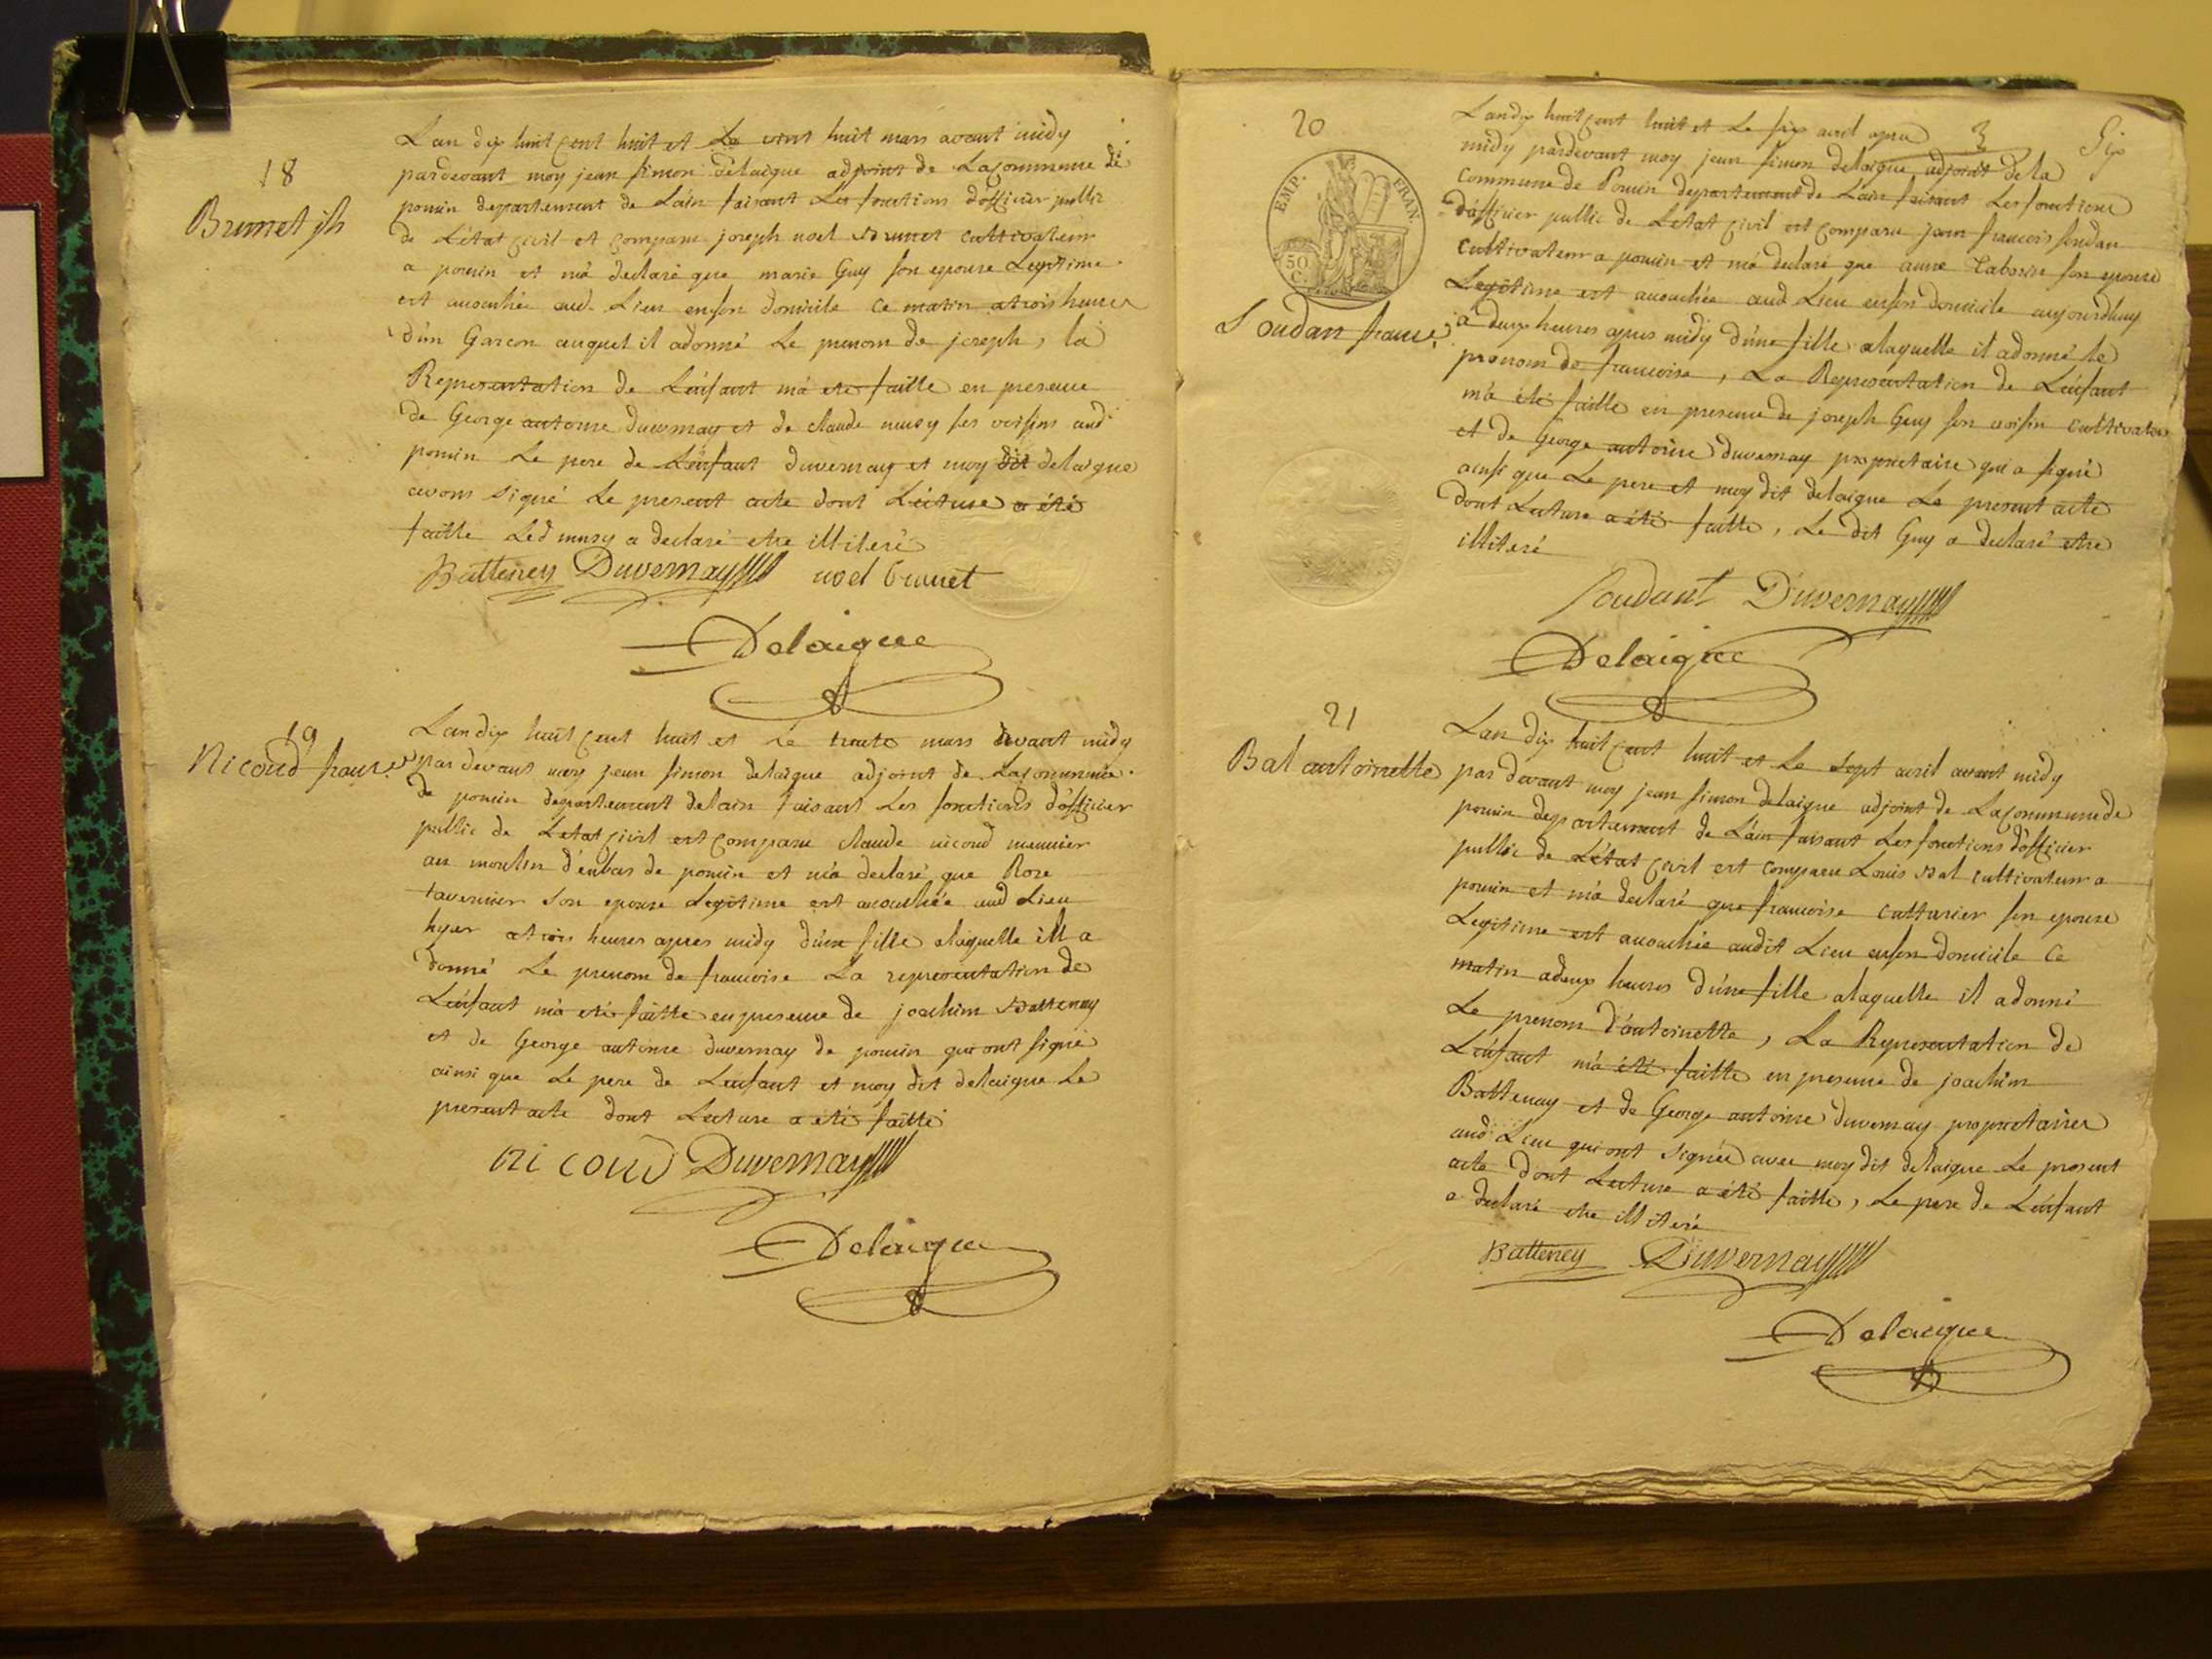 18
Brunet jh
Lan dix huit cent huit et Le vint huit mars avant midy
pardevant moy jean simon delaigue adjoint de La commune de
poncin departement de Lain faisant Les fonctions dofficier public
de L'état civil et comparu joseph noel Brunet cultivateur
a poncin et m'a declaré que marie Guy son epouse Legitime
est accouchée aud. Lieu en son domicile ce matin a trois heures
d'un Garcon auquel il a donné Le prenom de joseph, la
Representation de L'enfant m'a eté faitte en presence
de George antoine duvernay et de claude musy ses voisins aud
poncin Le pere de L'enfant duvernay et moy dit delaigue
avons signé Le present acte dont Lecture a été
faitte Led musy a declaré etre illiteré
Batteney Duvernay noel brunet
Delaigue
19
Nicoud franc.e
Lan dix huit cent huit et Le trente mars avant midy
par devant moy jean simon delaigue adjoint de La commune
de poncin departement de lain faisant Les fonctions d'officier
public de L'etat civil est comparu claude nicoud meunier
au moulin d'enbas de poncin et m'a declaré que Rose
tavernier son epouse Legitime est accouchée aud Lieu
hyer a trois heures apres midy d'une fille alaquelle ill a
donné Le prenom de francoise La representation de
L'enfant m'a eté faitte en presence de joachim Battenay
et de George antoine duvernay de poncin qui ont signé
ainsi que Le pere de L'enfant et moy dit delaigue Le
present acte dont Lecture a eté faitte
nicoud Duvernay
Delaigue
20
3
Six
EMP. FRAN.
50
C.
Soudan franc.e
Lan dix huit cent huit et Le six avril apres
midy pardevant moy jean simon delaigue adjoint de la
Commune de Poncin departement de L'ain faisant Les fonctions
d'officier public de L'etat civil est comparu jean francois soudan
cultivateur a poncin et m'a declaré que anne son epouse
Legitime est accouchée aud Lieu en son domicile aujourdhuy
a deux heures apres midy d'une fille alaquelle il a donné le
prenom de francoise, La Representation de L'enfant
m'a été faitte en presence de joseph Guy son voisin cultivateur
et de George antoine duvernay proprietaire qui a signé
ainsi que Le pere et moy dit delaigue Le present acte
dont Lecture a été faitte, Le dit Guy a declaré etre
illiteré
Soudant Duvernay
Delaigue
21
Bal antoinette
Lan dix huit cent huit et Le sept avril avant midy
par devant moy jean simon delaigue adjoint de La commune de
poncin departement de L'ain faisant Les fonctions d'officier
public de L'état civil est comparu Louis Bal cultivateur a
poncin et m'a declaré que francoise cutturier son epouse
Legitime est accouchée audit Lieu en son domicile ce
matin a deux heures d'une fille alaquelle il a donné
Le prenom d'antoinette, La Representation de
L'enfant m'a été faitte en presence de joachim
Battenay et de George antoine duvernay proprietaires
aud Lieu qui ont signés avec moy dit delaigue Le present
acte dont Lecture a été faitte, Le pere de L'enfant
a declaré etre illiteré
Batteney Duvernay
Delaigue